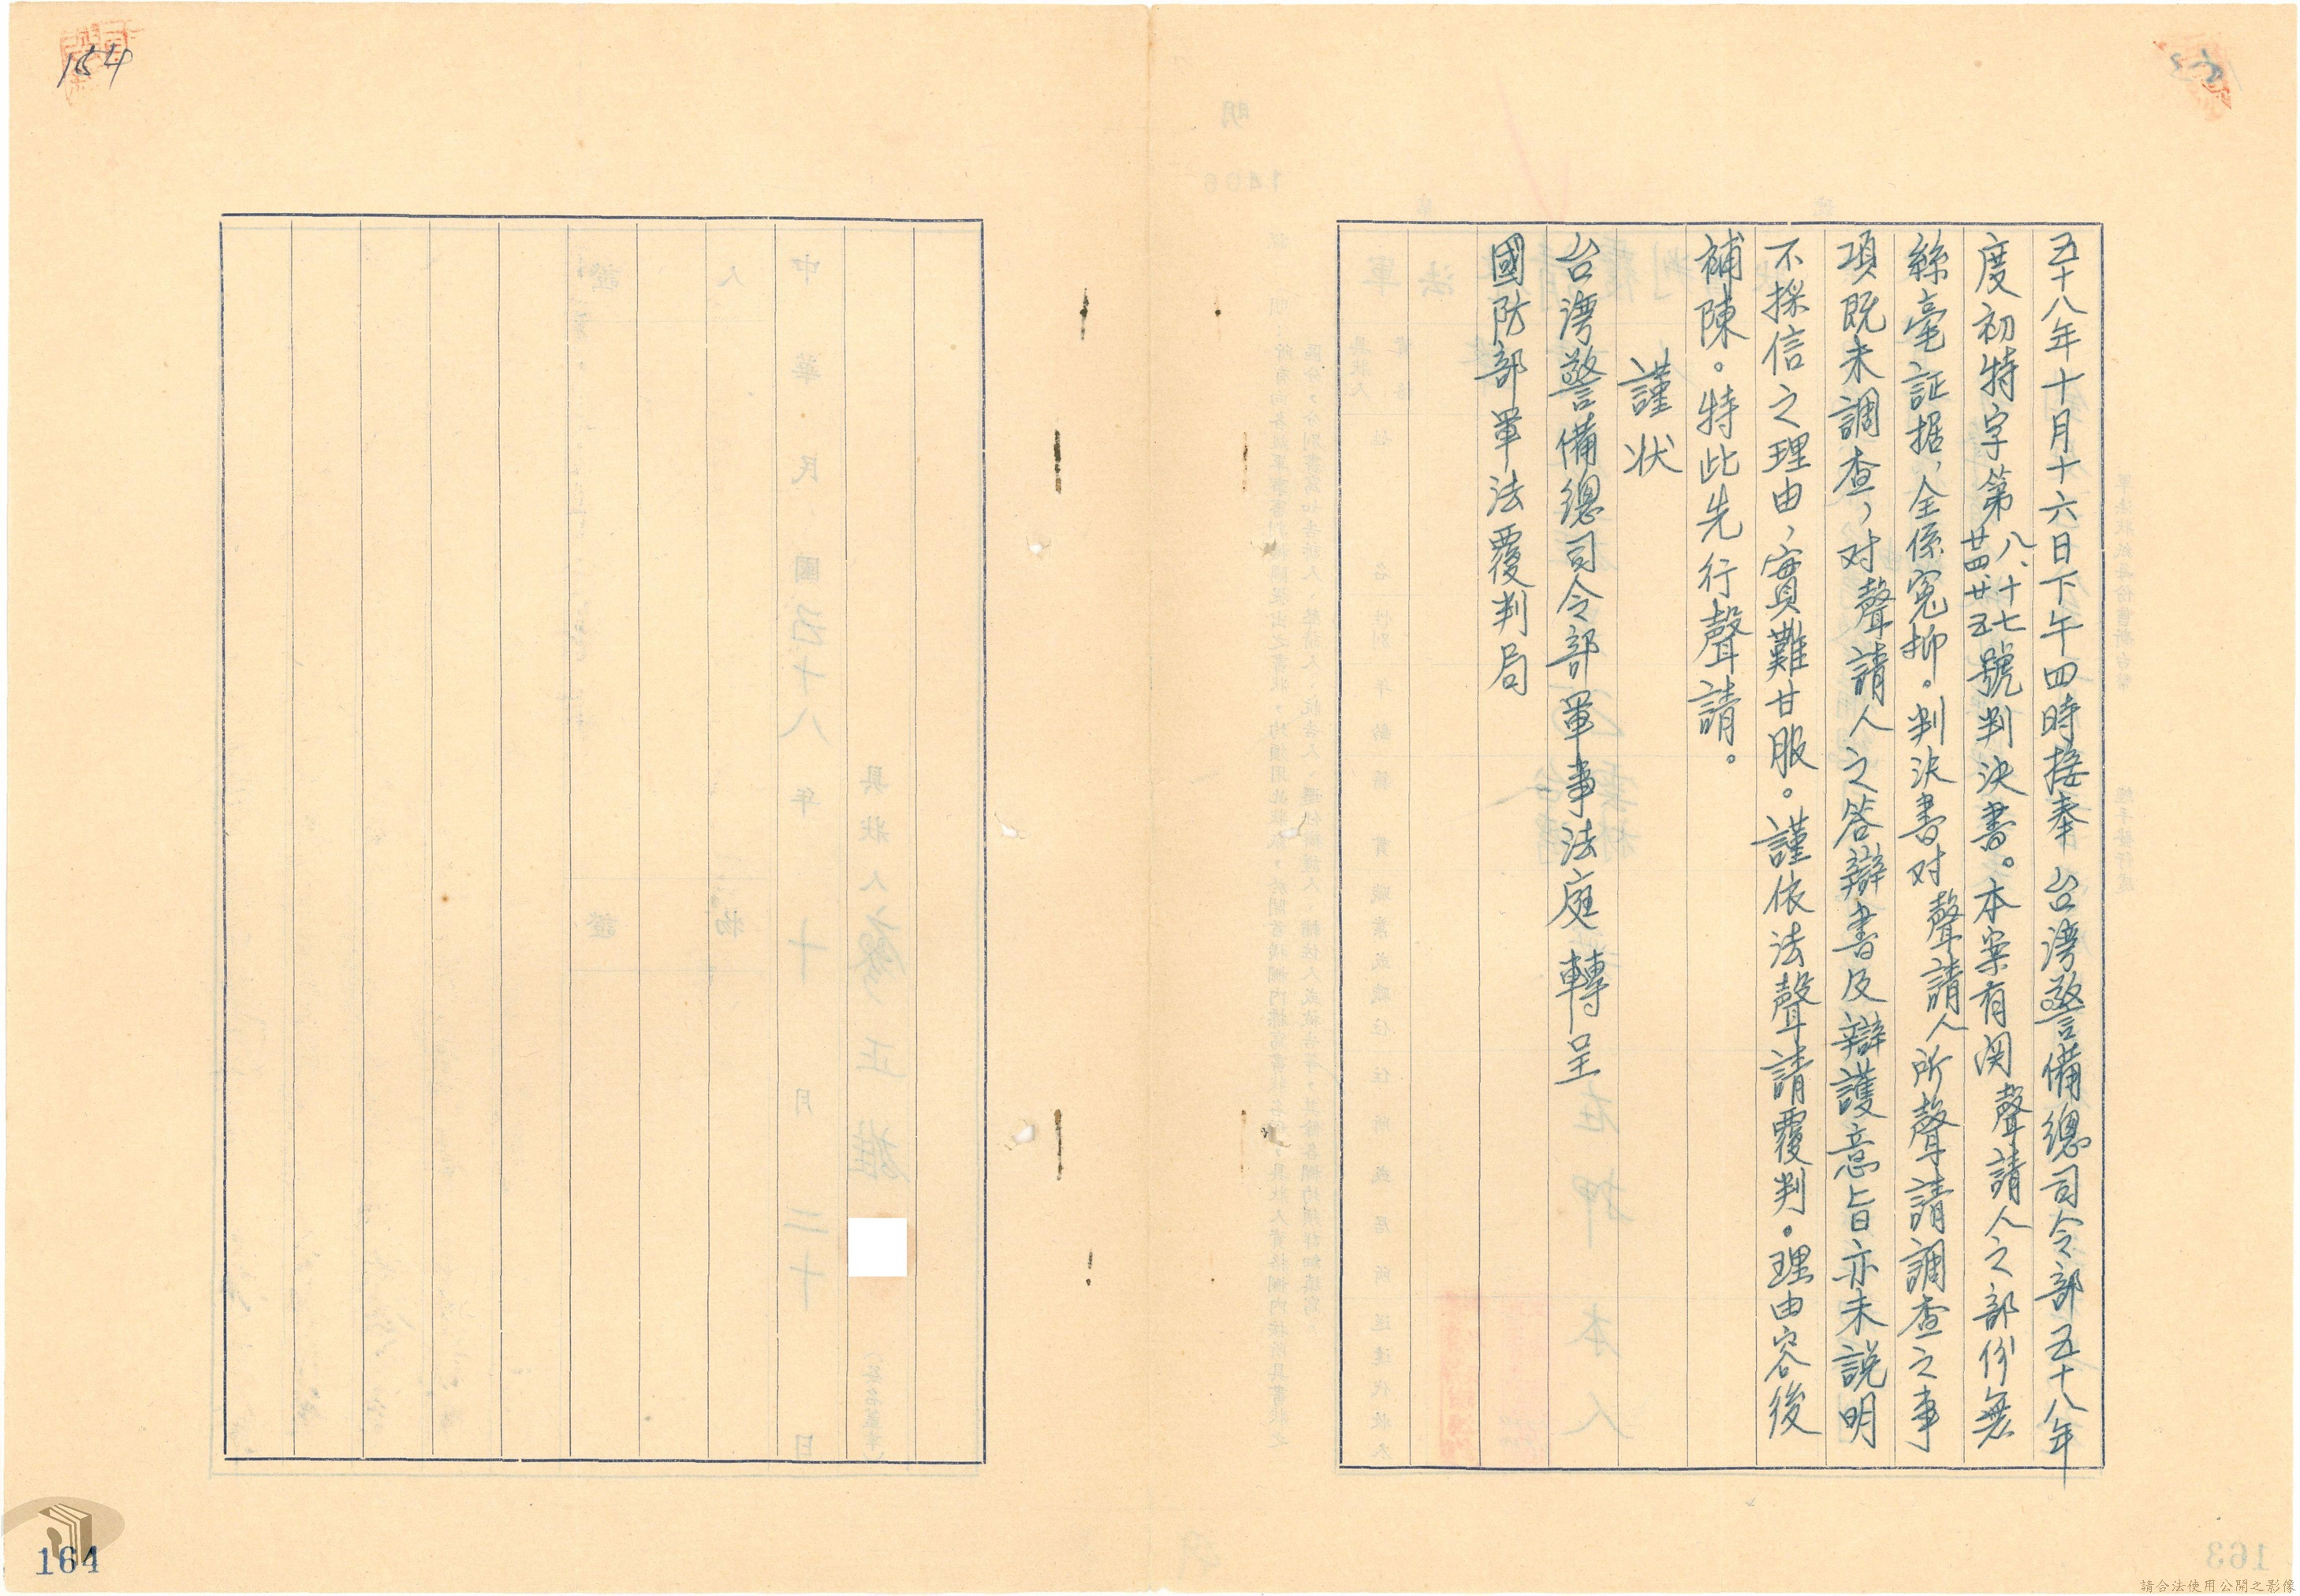 五十八年十月十六日下午四時接奉 台湾警備總司令部五十八年
度初特字第八、十七廿四、廿五號判決書。本案有関 聲請人之部份無
絲毫証据，全係冤抑。判決書对 聲請人所聲請調查之事
項既未調查，对 聲請人之答辯書及辯護意旨亦未說明
不採信之理由，實難甘服。謹依法聲請覆判。理由容後
補陳。特此先行聲請。
謹狀
台湾警備總司令部軍事法庭 轉呈
國防部軍法覆判局
154
164
請合法使用公開之影像